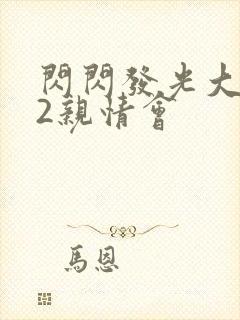 閃閃發光大
2親情會
馬恩